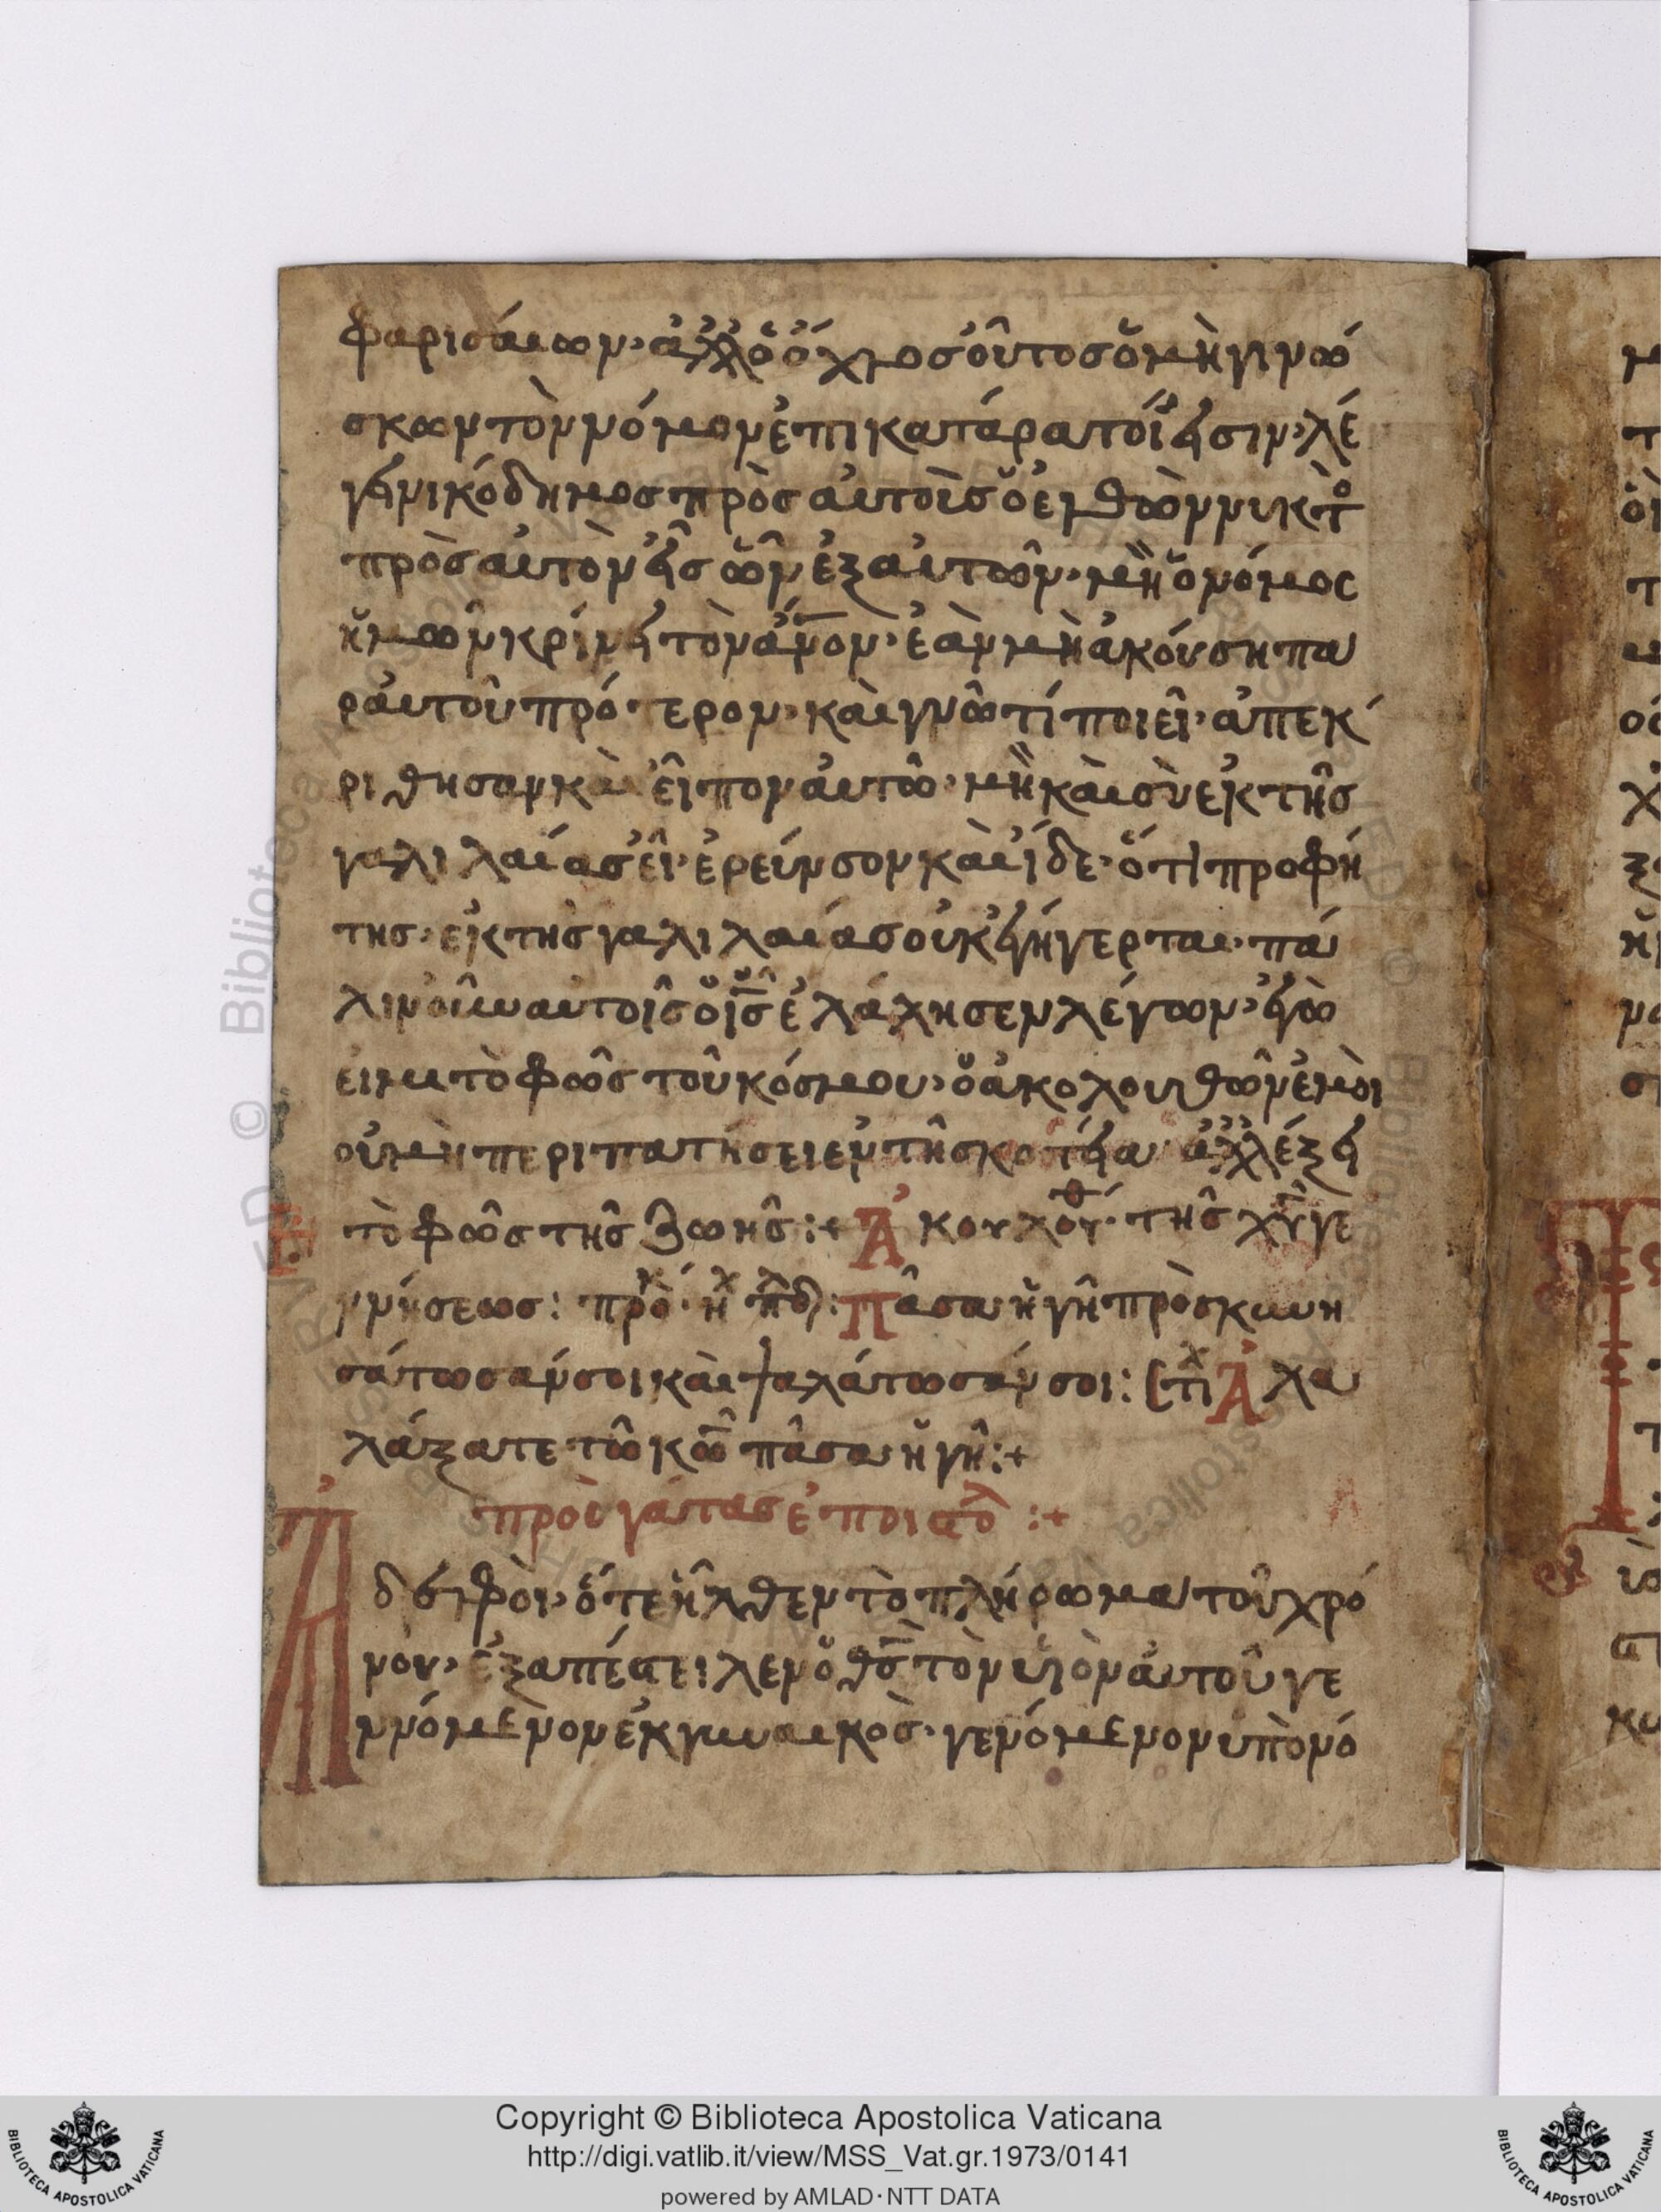 φαρισάιων· ἀλλ ὁ ὄχλος οὗτος ὁ μὴ γινώ
σκων τὸν νόμον ἐπικατάρατοί εἰσιν· λέ
γει νικόδημος πρὸς αὐτοὺς ὁ ἐλθὼν νυκτὸ
πρὸς αὐτὸν εἷς ὢν ἐξ αὐτῶν· μὴ ὁ νόμος
ἡμῶν κρίνει τὸν ἄνον· ἐὰν μὴ ἀκούση πα
ρ αὐτοῦ πρότερον· καὶ γνῶ τί ποιεῖ· ἀπεκ
ριθησαν καὶ εἶπον αὐτῶ· μὴ καὶ σὺ ἐκ τῆς
γαλιλαίας εἶ· ἐρεύνσον καὶ ἴδε· ὅτι προφή
της· ἐκ τῆς γαλιλαίας οὐκ ἐγήγερται· πά
λιν οὖν αὐτοῖς ὁ ις ἐλάλησεν λέγων· ἐγὼ
εἰμι τὸ φῶς τοῦ κόσμου· ὁ ἀκολουθῶν ἐμοὶ
οὐ μὴ περιπατήσει ἐν τῆ σκοτεία ἀλλ ἕξει
τὸ φῶς τῆς ζωῆς :+ Ἀκολου τῆς χυ γε
ννήσεως : προκ· ἠχ πλδ : Πᾶσα ἡ γῆ προσκυνη
σάτωσάν σοι καὶ ψαλάτωσάν σοι : στιχ Ἀλα
λάξατε τῶ κω πᾶσα ἡ γῆ :+
πρὸς γάλατας ἐπιστολ :+
Ἀδελφοὶ· ὅτε ἦλθεν τὸ πλήρωμα τοῦ χρό
νου· ἐξαπέστειλεν ὁ θς τὸν υἱὸν αὐτοῦ γε
ννόμενον ἐκ γυναικὸς· γενόμενον ὑπὸ νό
Copyright © Biblioteca Apostolica Vaticana
http://digi.vatlib.it/view/MSS_Vat.gr.1973/0141
powered by AMLAD·NTT DATA